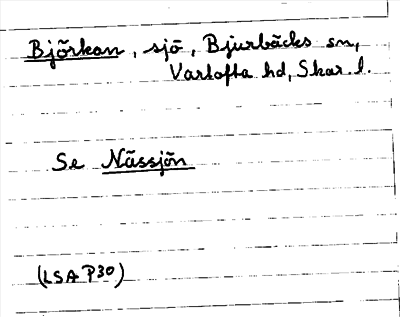 Björkan, sjö, Bjurbäcks sn,
Vartofta hd, Skar. l.
Se Nässjön
(LSA P30)